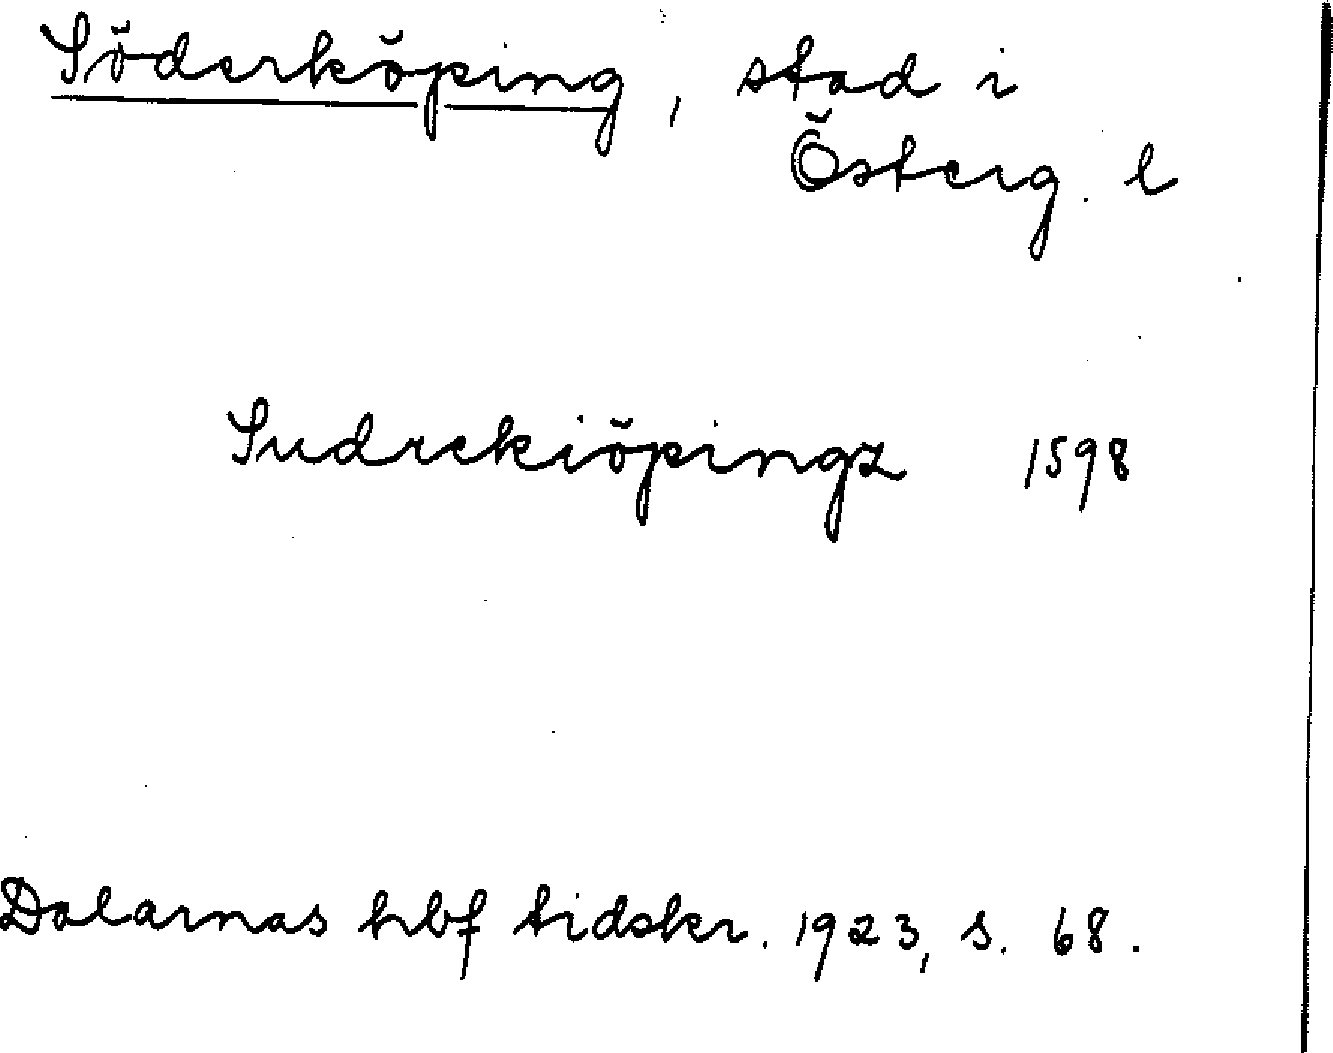 Söderköping, stad i
Österg. l
Sudrekiöpingz 1598
Dalarnas hbf tidskr. 1923, s. 68.